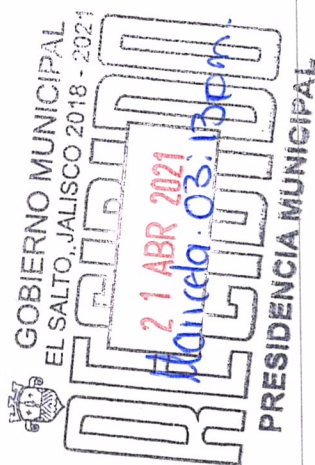 GOBIERNO MUNICIPAL
EL SALTO, JALISCO 2018 - 2021
RECIBIDO
21 ABR 2021
Marcela. 03:13pm.
PRESIDENCIA MUNICIPAL